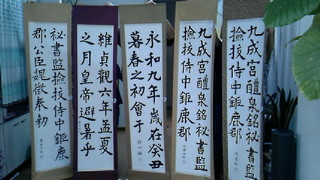 九成宮醴泉銘祕書監
撿挍侍中鉅鹿郡
九成宮醴泉銘祕書監
撿挍侍中鉅鹿郡
永和九年歳在癸丑
暮春之初會于
維貞觀六年孟夏
之月皇帝避暑乎
祕書監撿挍侍中鉅鹿
郡公臣魏徵奉勅